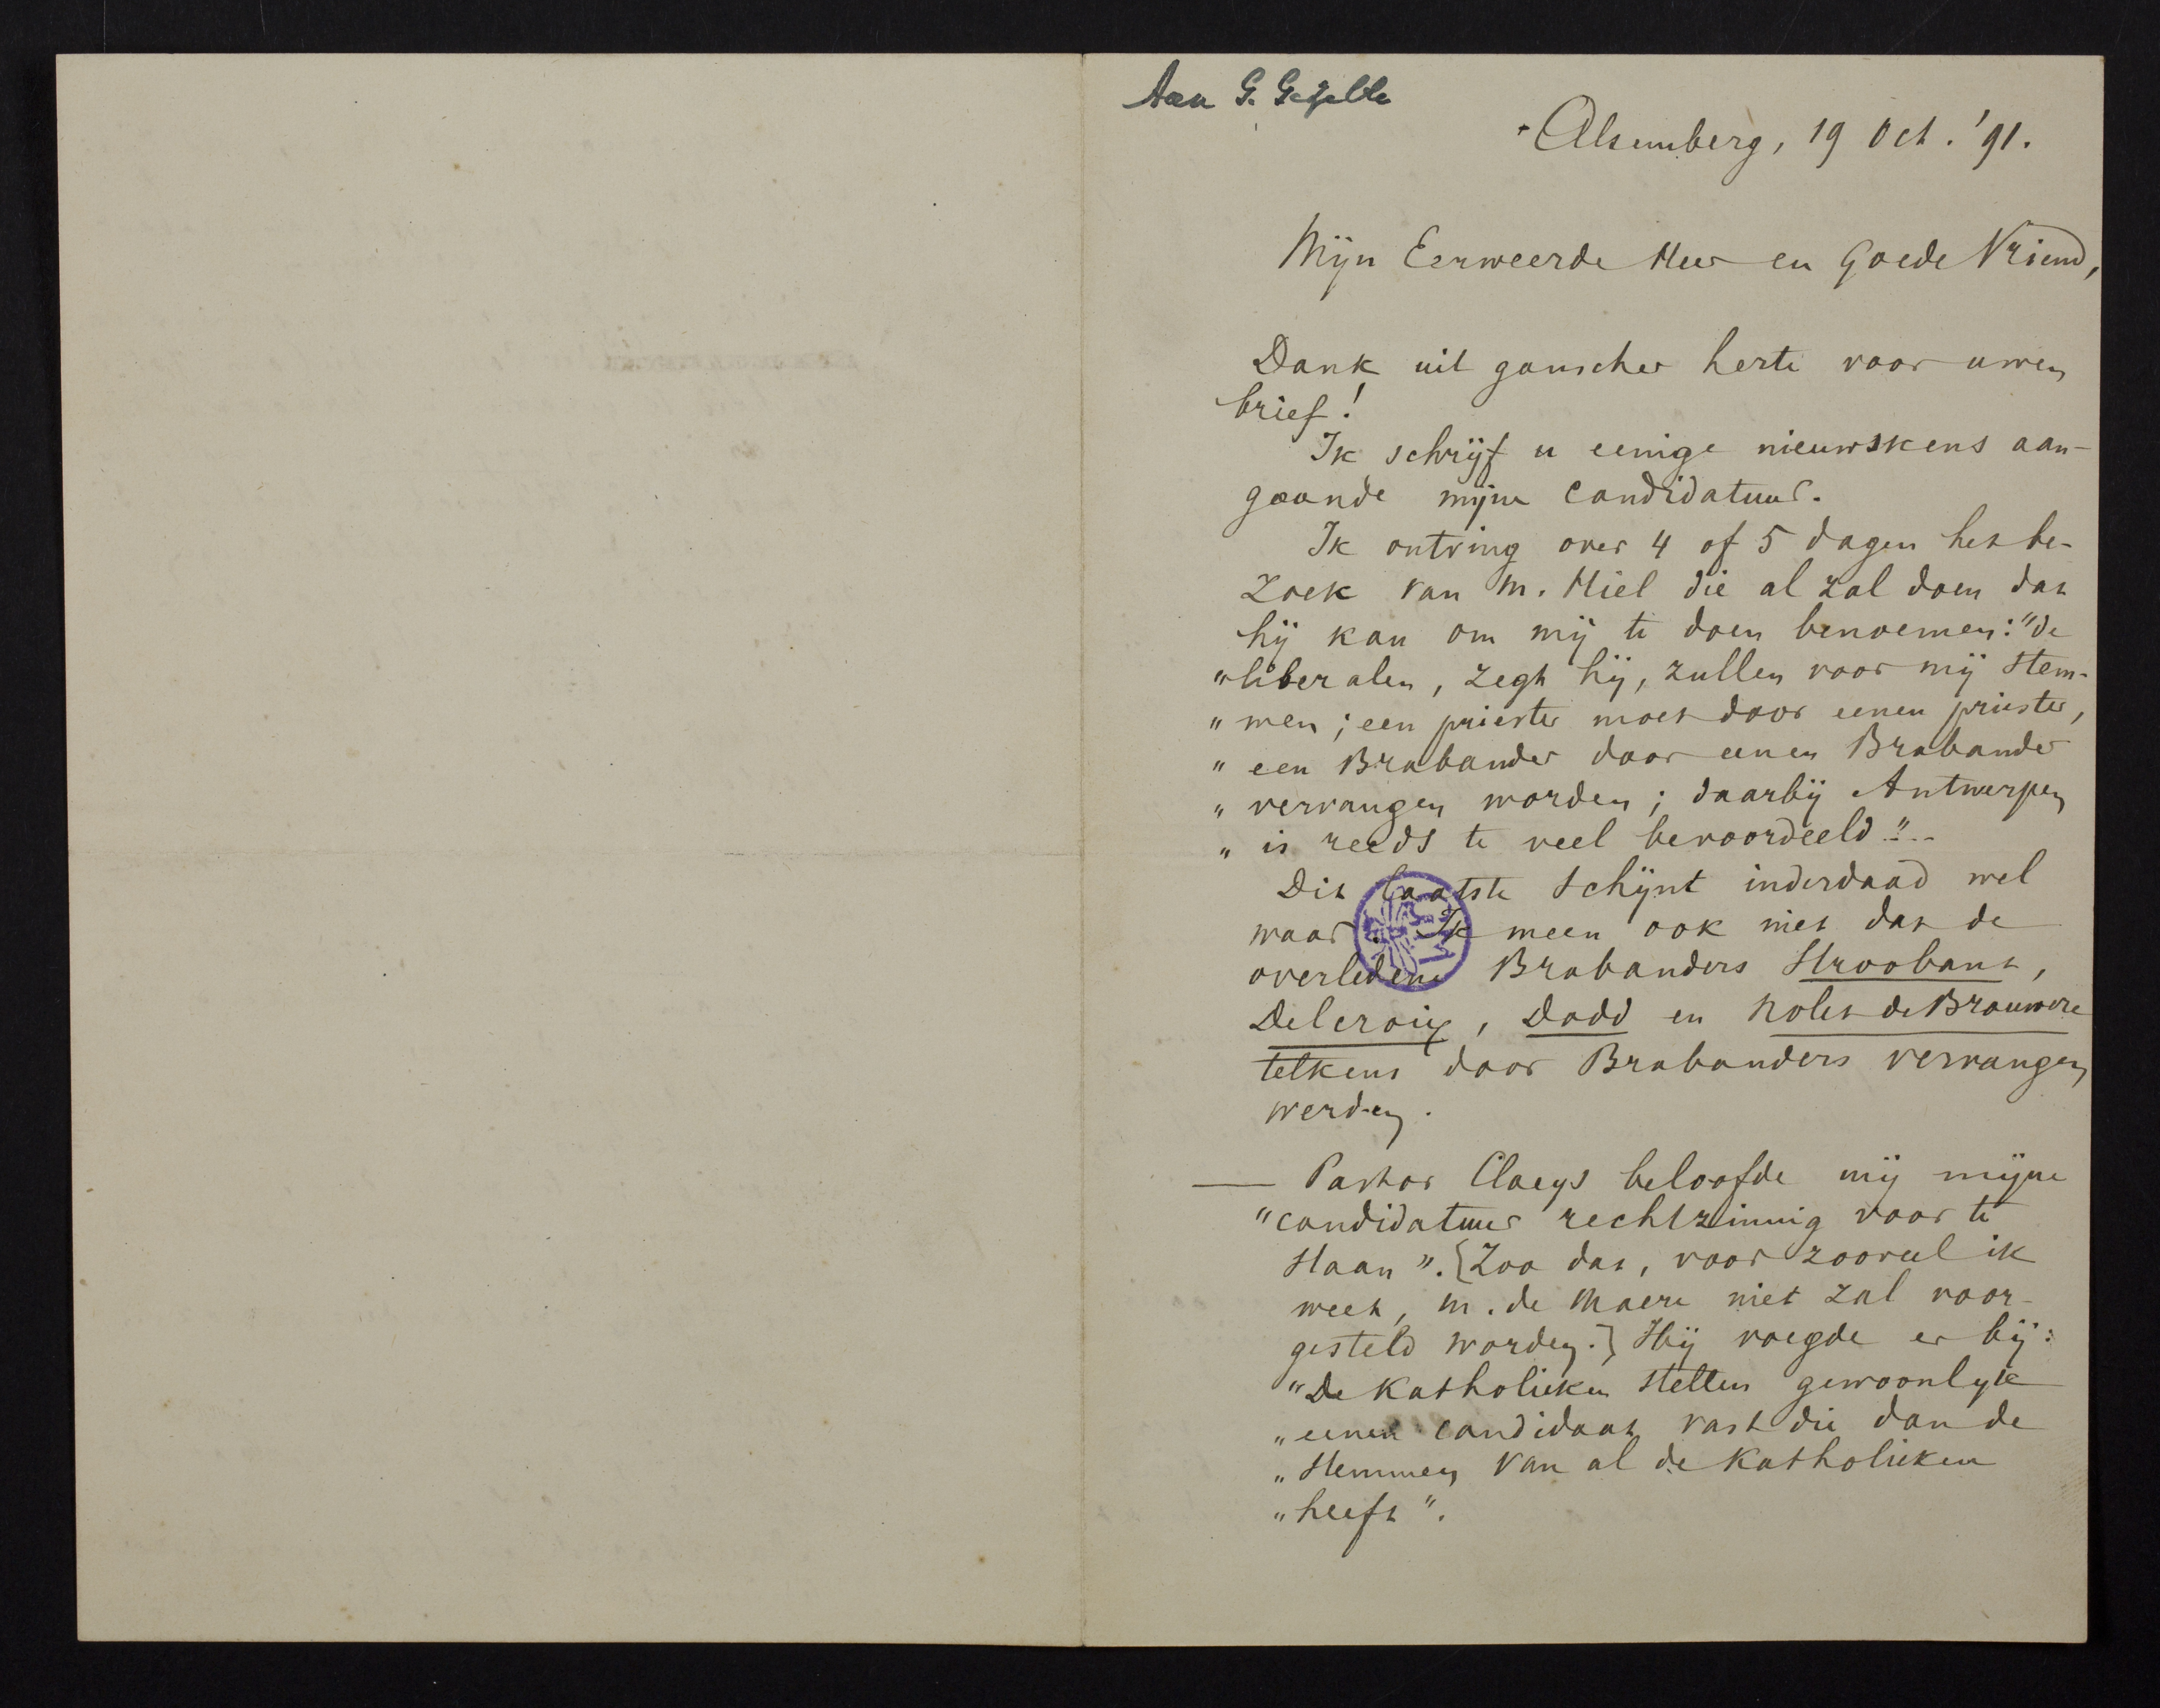 Aan G. Gezelle
Alsemberg, 19 Oct. '91.
Mijn Eerweerde Heer en Goede Vriend,
Dank uit ganscher herte voor uwen
brief!
Ik schrijf u eenige nieuwskens aan-
gaande mijne candidatuur.
Ik ontving over 4 of 5 dagen het be-
zoek van M. Hiel die al zal doen dat
hij kan om mij te doen benoemen: "de
"liberalen, zegt hij, zullen voor mij stem-
"men; een priester moet door eenen priester,
"een Brabander door eenen Brabander
"vervangen worden; daarbij Antwerpen
"is reeds te veel bevoordeeld."..
Dit laatste schijnt inderdaad wel
waar. Ik meen ook niet dat de
overledene Brabanders Stroobant,
Delcroix, Dodd en Nolet de Brauwere
telkens door Brabanders vervangen
werden.
— Pastor Claeys beloofde mij mijne
"candidatuur rechtzinnig voor te
staan". [Zoo dat, voor zooveel ik
weet, M. de Maere niet zal voor-
gesteld worden.] Hij voegde er bij:
"De Katholieken stellen gewoonlyk
"eenen candidaat vast die dan de
"stemmen van al de Katholieken
"heeft".